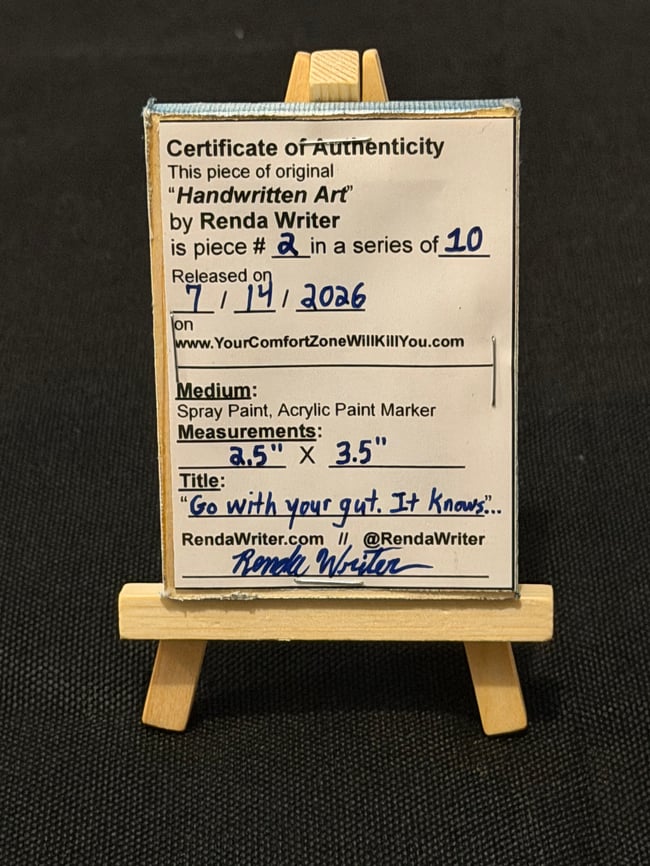 Certificate of Authenticity
This piece of original
"Handwritten Art"
by Renda Writer
is piece # 2 in a series of 10
Released on
7 / 14 / 2026
on
www.YourComfortZoneWillKillYou.com
Medium:
Spray Paint, Acrylic Paint Marker
Measurements:
2.5" X 3.5"
Title:
"Go with your gut. It knows"...
RendaWriter.com // @RendaWriter
Renda Writer